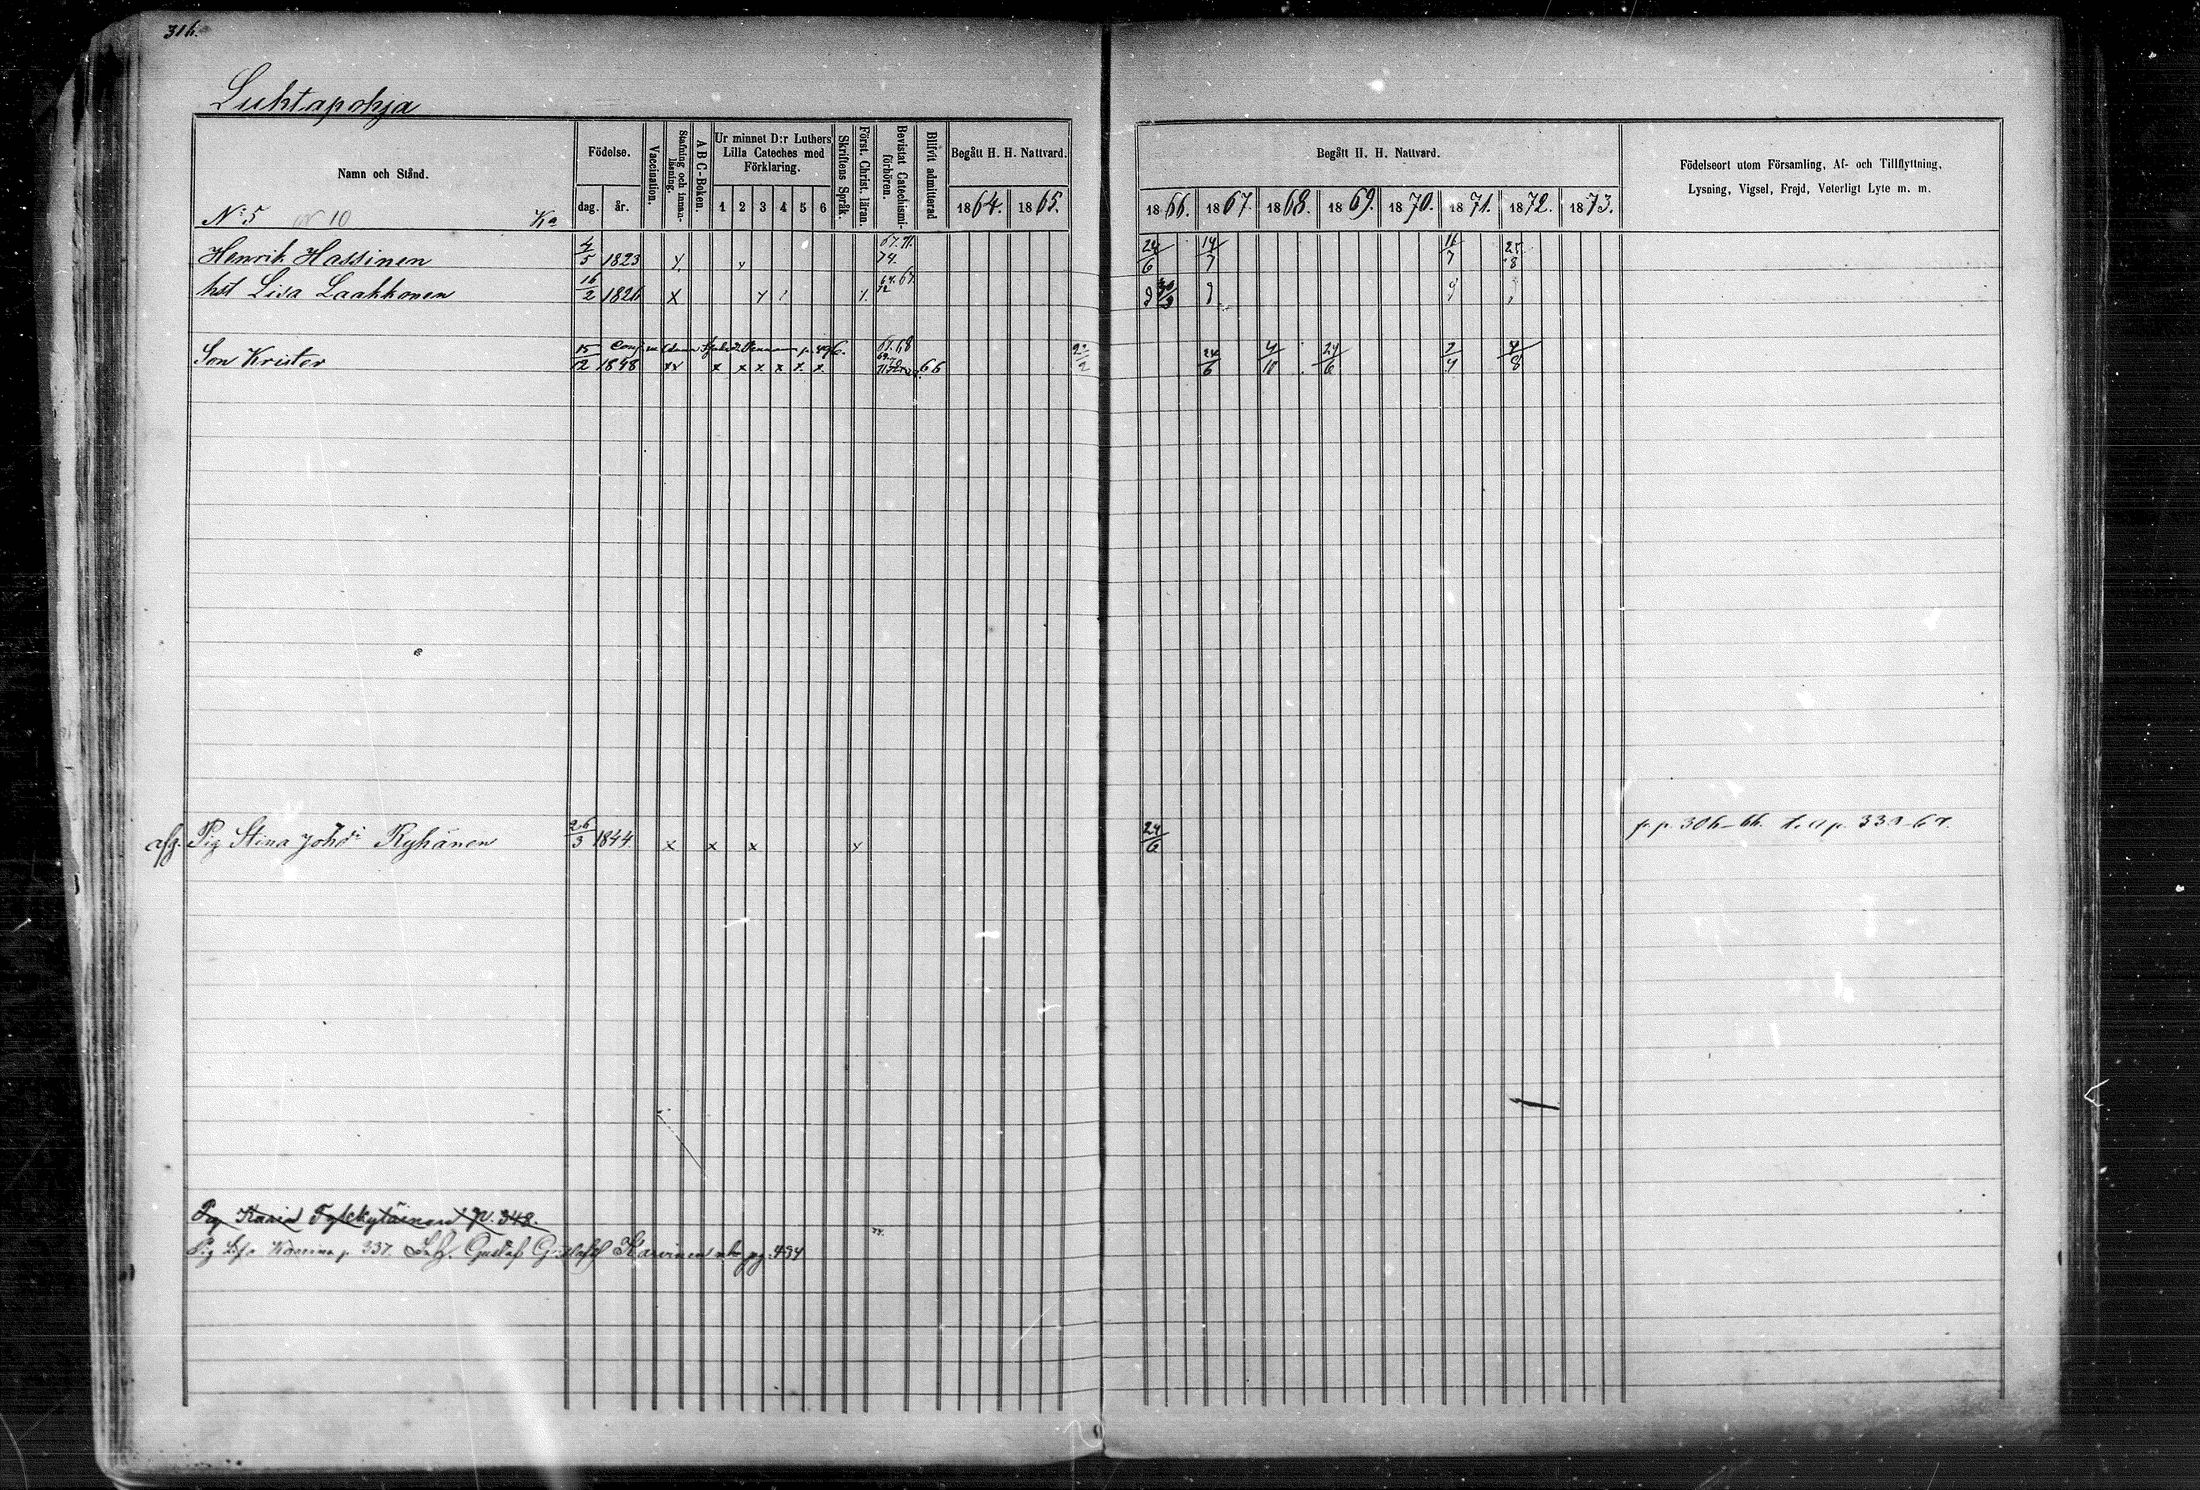 316.
Luhtapohja
Namn och Stånd.
Födelse.
dag. år.
Vaccination.
Stafning och innanläsning.
A B C-Boken.
Ur minnet D:r Luthers Lilla Cateches med Förklaring.
1 2 3 4 5 6
Skriftens Språk.
Först. Christ. läran.
Bevistat Catechismiförhören.
Blifvit admitterad
Begått H. H. Nattvard.
1864. 1865.
Begått H. H. Nattvard.
1866. 1867. 1868. 1869. 1870. 1871. 1872. 1873.
Födelseort utom Församling, Af- och Tillflyttning,
Lysning, Vigsel, Frejd, Veterligt Lyte m. m.
N:5 10 Ka
Henrik Hassinen 4/5 1823 x 67.71. 74. 24/6 14/7 16/7 25/8
hst Lisa Laakkonen 16/2 1826 x 64.67. 72
Son Krister 15/12 1848 xx x x x x x x 67.68 66 24/6 4/10 24/6 2/4 4/8
afg. Pig Stina Johsdr Ryhänen 26/3 1844 x x x x 24/6 fr. p. 306-66.
Pig Karin p. 348.
Pig Lisa p. 337. Gustaf Karvinen pg. 434